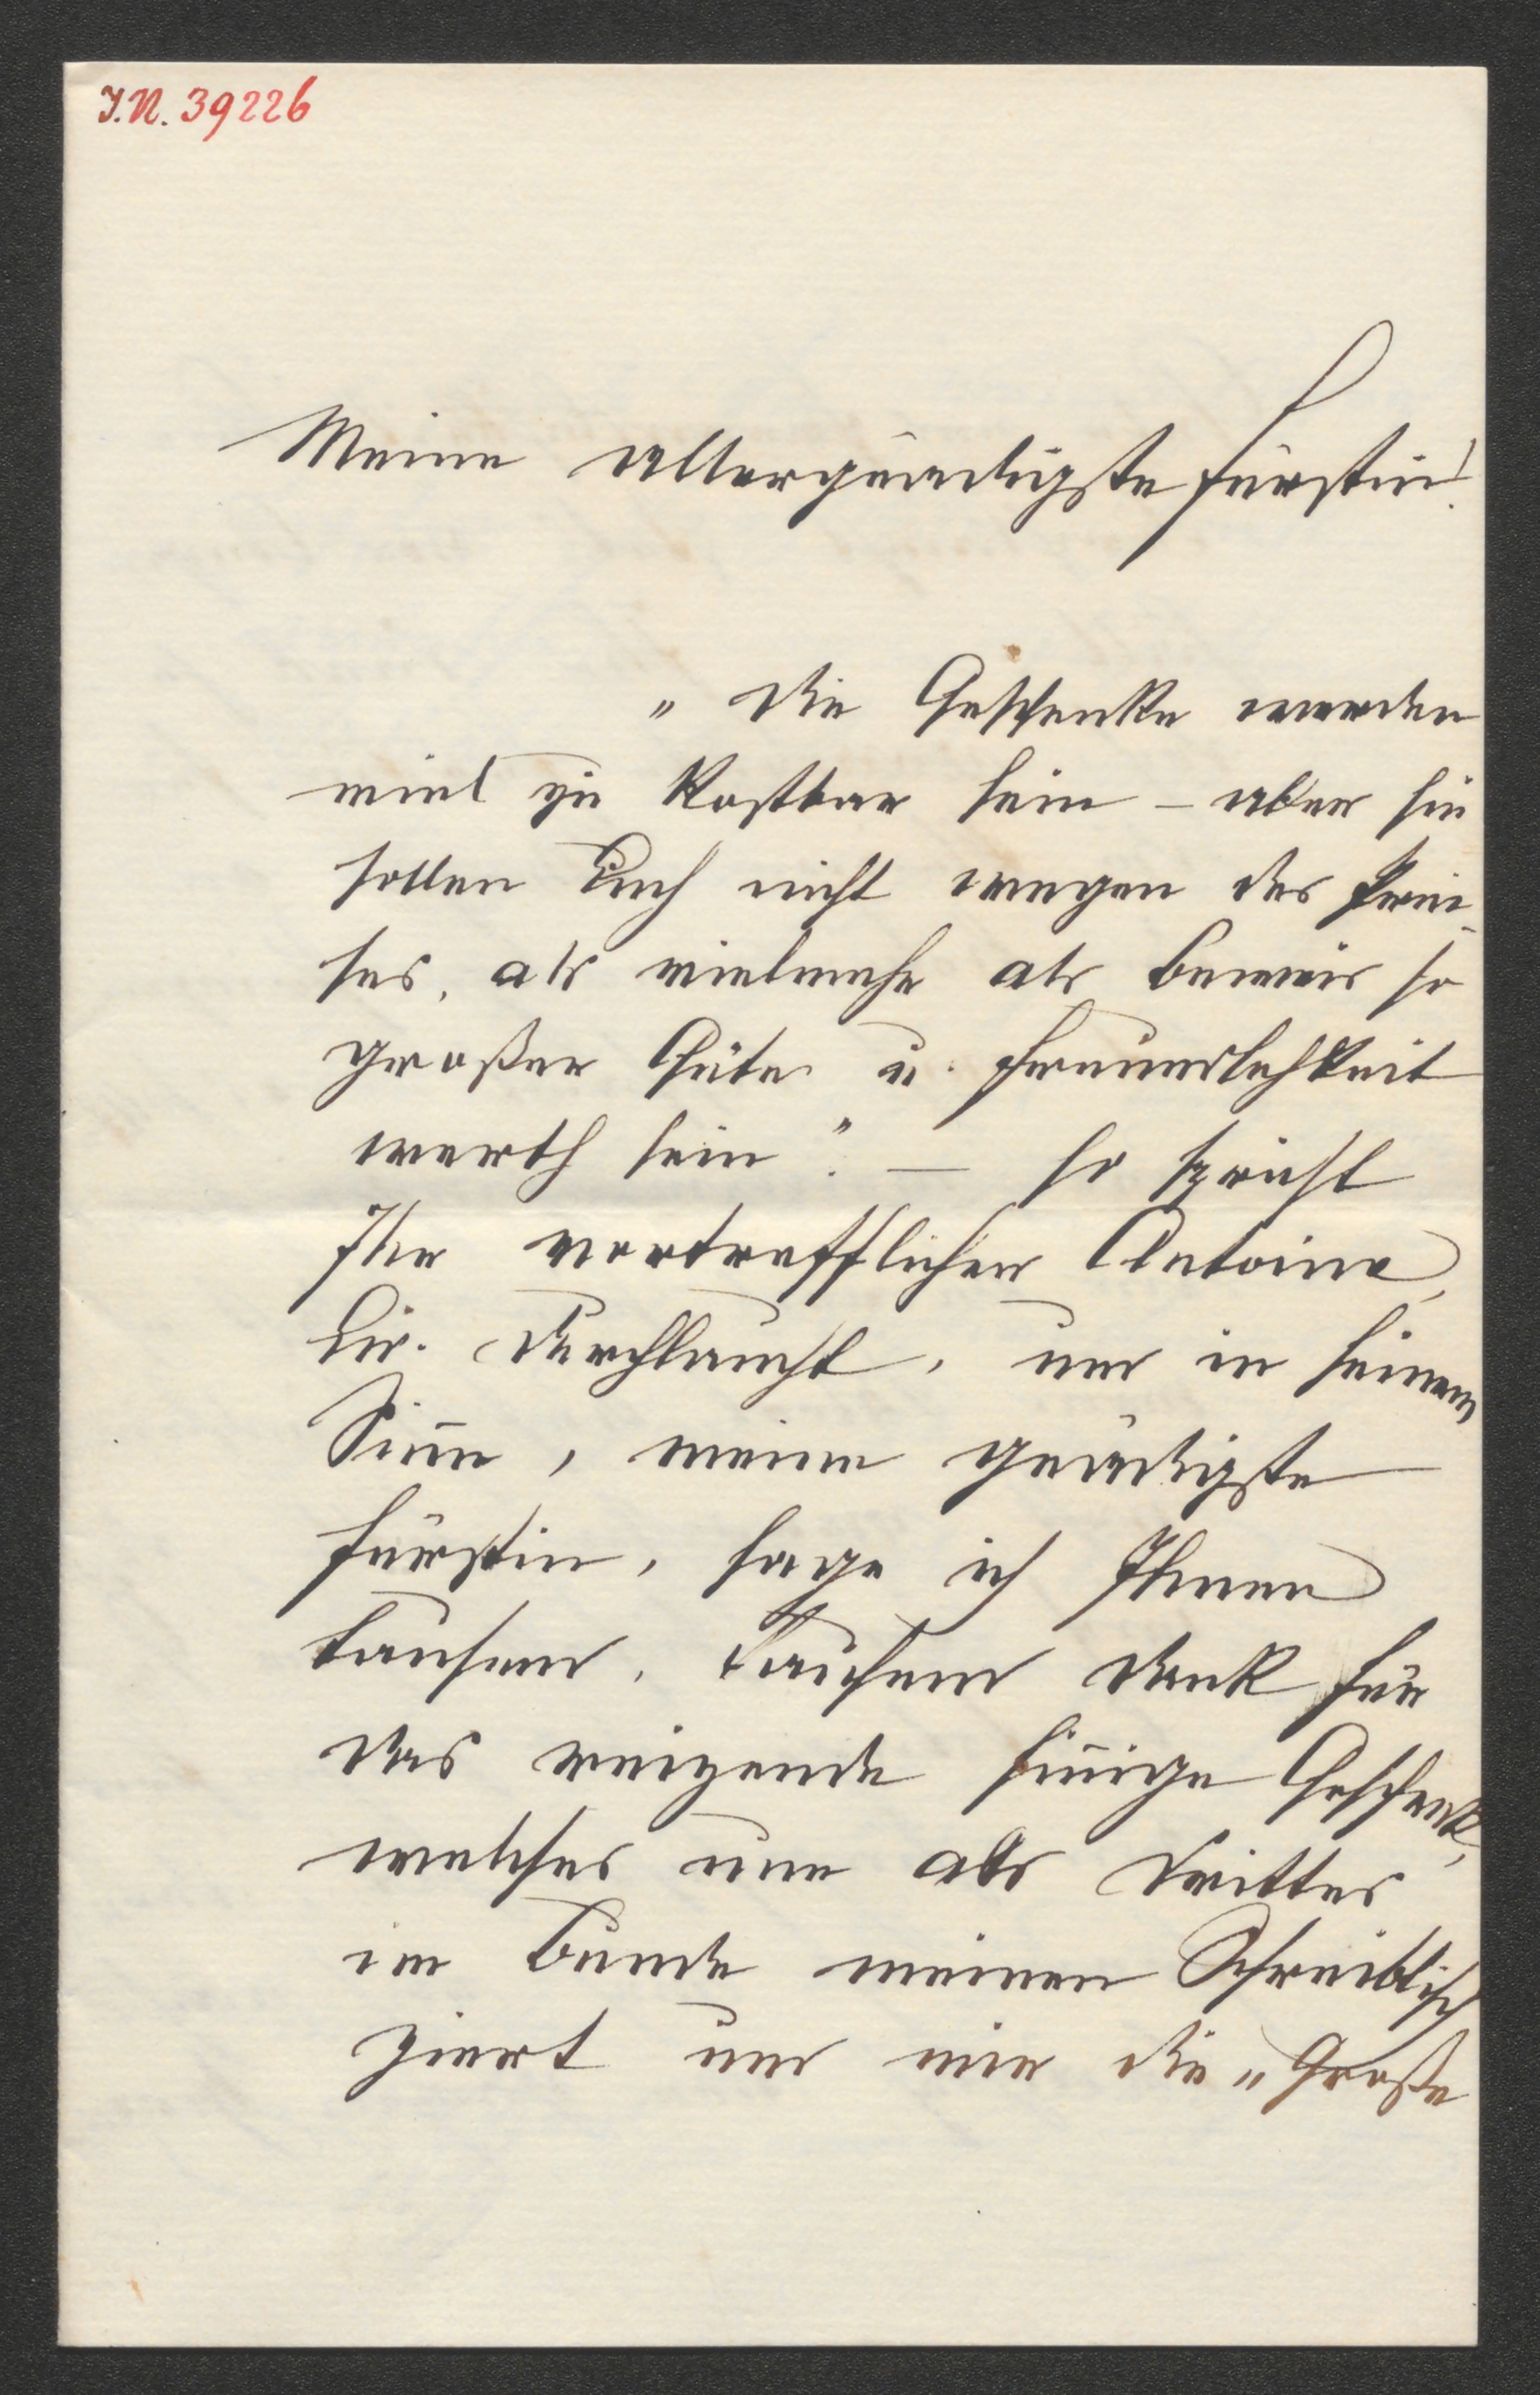 J.N. 39226
Meine allergnädigste Fürstin!
„Die Geschenke werden
viel zu kostbar sein – aber sie
sollen Euch nicht wegen des Prei-
ses, als vielmehr als Beweis so
großer Güte u. Freundlichkeit
werth sein". — so spricht
Ihr vortrefflicher Antoine,
Eu. Durchlaucht, und in seinem
Sinn, meine gnädigste
Fürstin, sage ich Ihnen
tausend, tausend Dank für
das reizende sinnige Geschenk,
welches nun als Drittes
im Bunde meinen Schreibtisch
ziert und mir die „Große